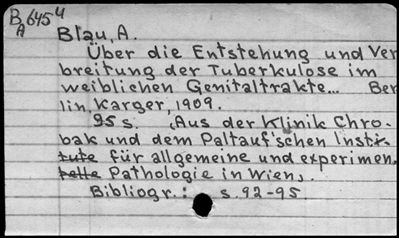 B 645 u
A
Blau, A.
Über die Entstehung und Ver
breitung der Tuberkulose im
weiblichen Genitaltrakte... Ber
lin Karger, 1909.
95 s. (Aus der Klinik Chro-
bak und dem Paltauf'schen Insti-
tute für allgemeine und experimen.
telle Pathologie in Wien,.
Bibliogr.: s. 92-95